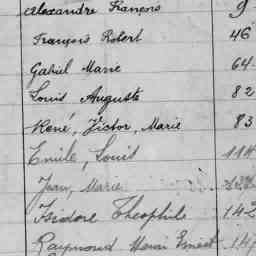 Alexandre François 9
François Robert 46
Gabriel Marie 64
Louis Auguste 82
René, Victor, Marie 83
Emile, Louis 114
Jean, Marie
Isidore Théophile 142
Raymond Henri Ernest